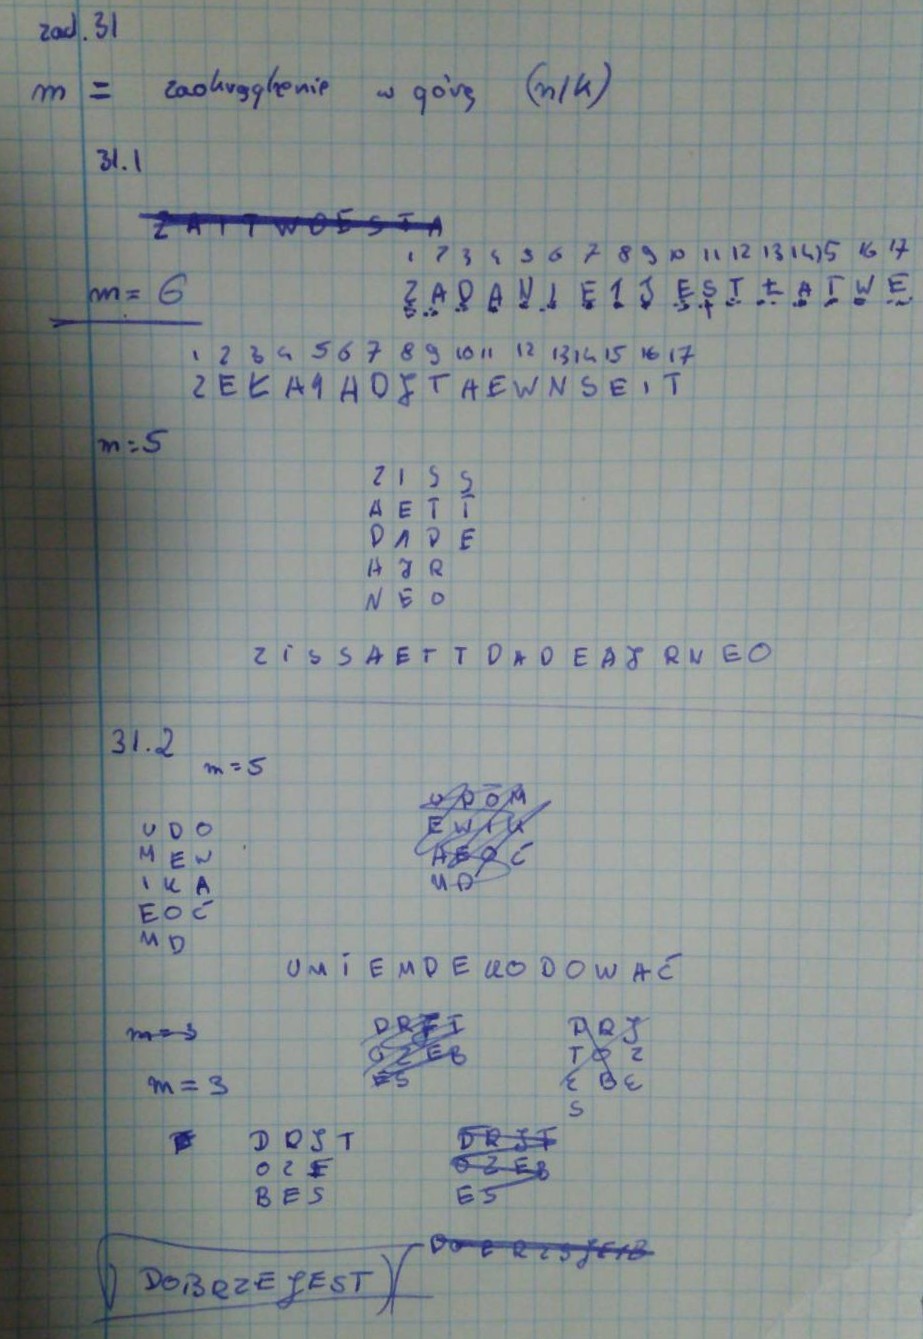 zad. 31
m = zaokrąglenie w górę (n/k)
31.1
Z A I T W O E S T A
1 2 3 4 5 6 7 8 9 10 11 12 13 14 15 16 17
m = 6
Z A D A N I E I J E S T Ł A T W E
1 2 3 4 5 6 7 8 9 10 11 12 13 14 15 16 17
Z E Ł A J A D J T A E W N S E I T
m = 5
Z I S S
A E T T
D A D E
A J R
N E O
Z I S S A E T T D A D E A J R N E O
31.2
m = 5
U D O M
E W I K
A E O Ć
M D
U D O
M E W
I K A
E O Ć
M D
U M I E M D E K O D O W A Ć
m = 3
D R J T
O Z E B
E S
D R J
T O Z
E B E
S
m = 3
D R J T
O Z E
B E S
D R J T
O Z E B
E S
DOBRZEJEST